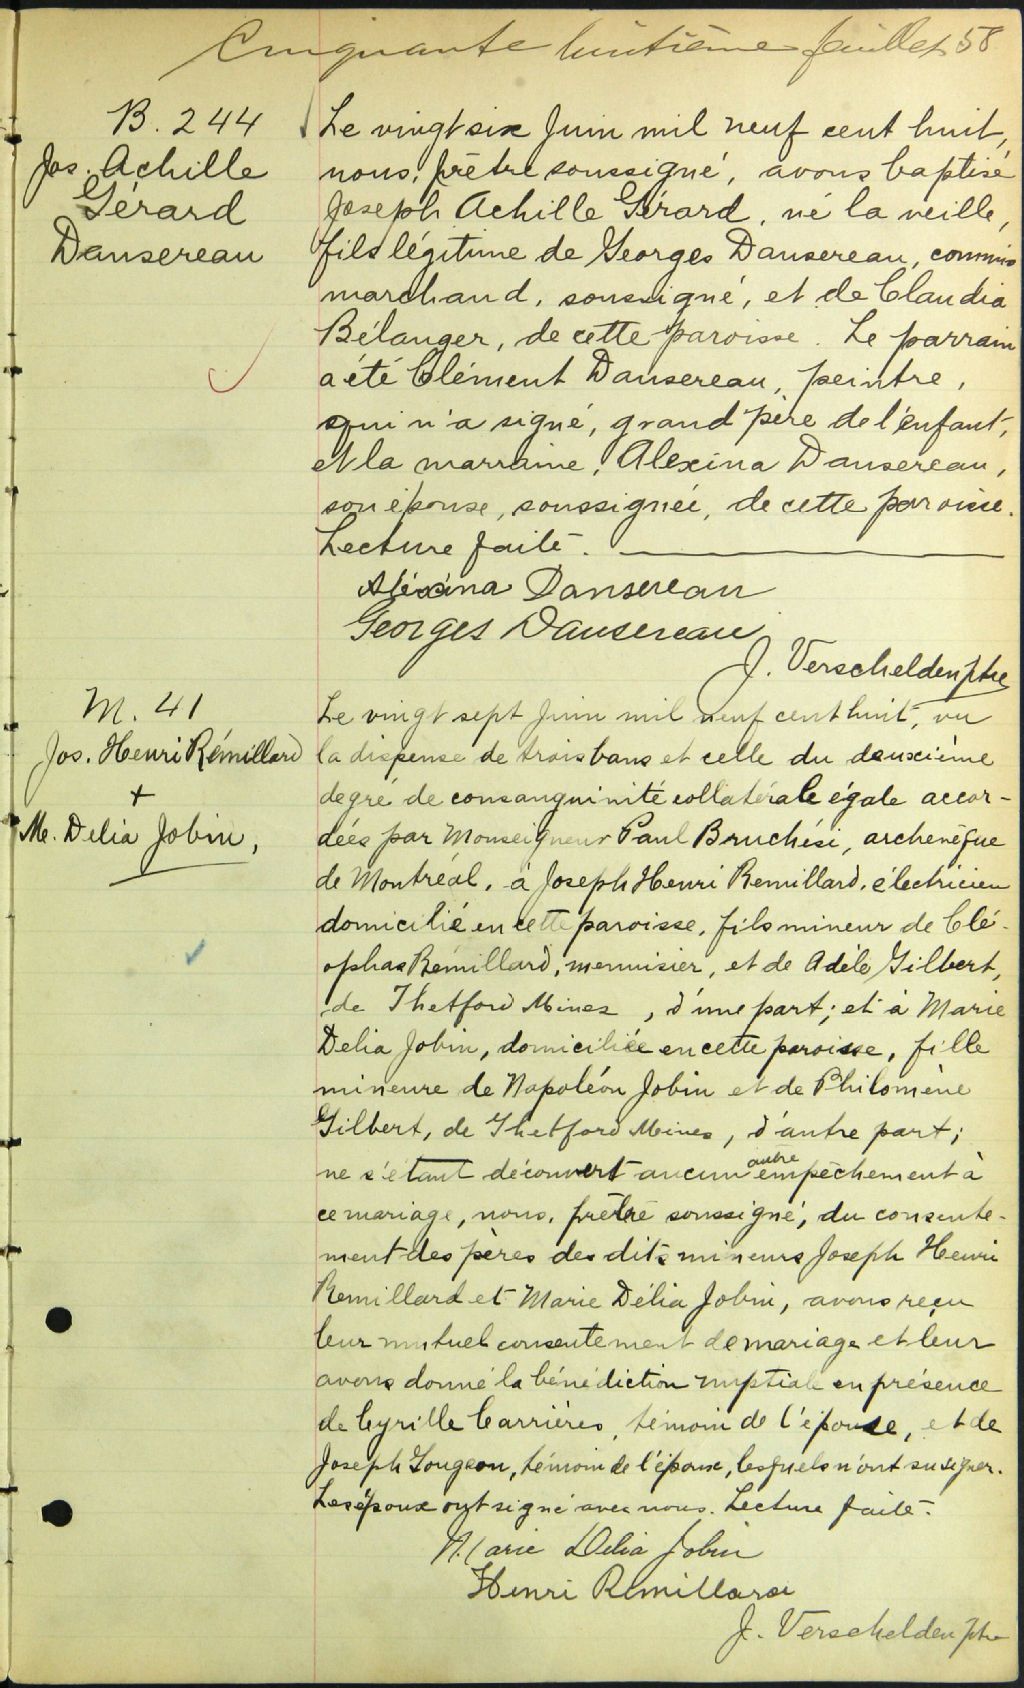 Cinquante huitième feuillet 58
B. 244
Jos. Achille
Gérard
Dansereau
Le vingt six Juin mil neuf cent huit,
nous, prêtre soussigné, avons baptisé
Joseph Achille Gérard, né la veille,
fils légitime de Georges Dansereau, commis
marchand, soussigné, et de Claudia
Bélanger, de cette paroisse. Le parrain
a été Clément Dansereau, peintre,
qui n'a signé, grand père de l'enfant,
et la marraine, Alexina Dansereau,
son épouse, soussignée, de cette paroisse.
Lecture faite.
Aléxina Dansereau
Georges Dansereau
J. Verschelden ptre
M. 41
Jos. Henri Rémillard
+
M. Delia Jobin,
Le vingt sept Juin mil neuf cent huit, vu
la dispense de trois bans et celle du deuxième
degré de consanguinité collatérale égale accor-
dées par Monseigneur Paul Bruchési, archevêque
de Montréal, à Joseph Henri Remillard, électricien
domicilié en cette paroisse, fils mineur de Clé-
ophas Rémillard, menuisier, et de Adèle Gilbert,
de Thetford Mines, d'une part; et à Marie
Delia Jobin, domiciliée en cette paroisse, fille
mineure de Napoléon Jobin et de Philomène
Gilbert, de Thetford Mines, d'autre part;
ne s'étant découvert aucun autre empêchement à
ce mariage, nous, prêtre soussigné, du consente-
ment des pères des dits mineurs Joseph Henri
Remillard et Marie Délia Jobin, avons reçu
leur mutuel consentement de mariage et leur
avons donné la bénédiction nuptiale en présence
de Cyrille Carrières, témoin de l'épouse, et de
Joseph Gougeon, témoin de l'époux, lesquels n'ont su signer.
Les époux ont signé avec nous. Lecture faite.
Marie Delia Jobin
Henri Remillard
J. Verschelden ptre